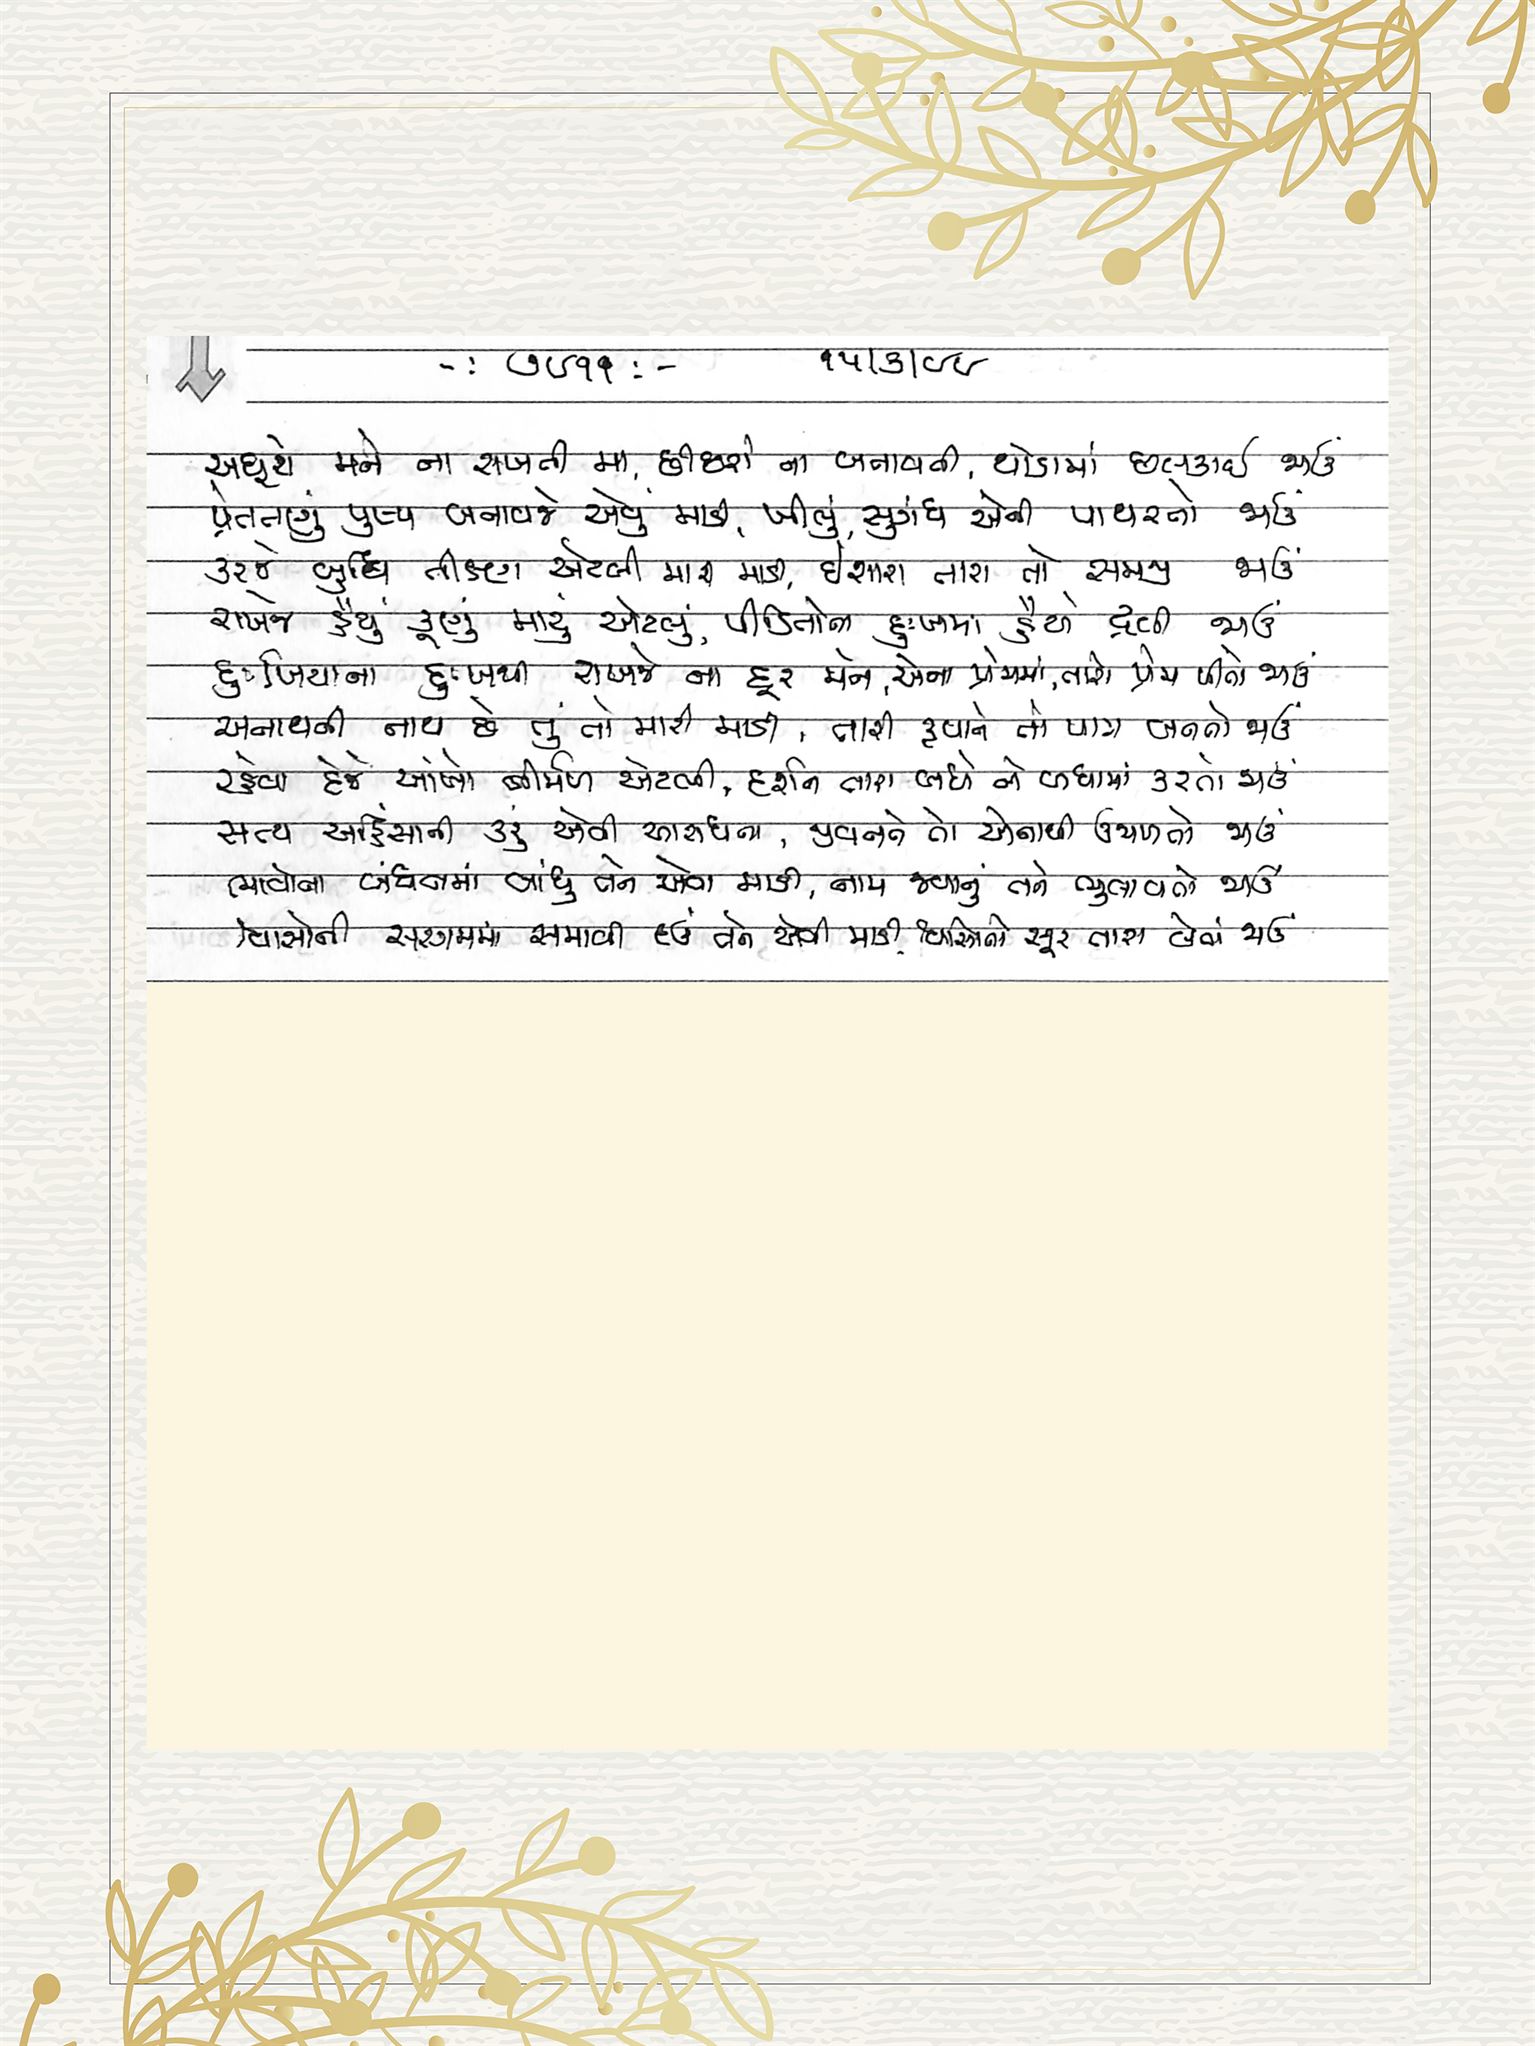 -: ૭૯૧૧ :- ૧૫/૩/૯૯
અધૂરો મને ના રાખતી મા, છીછરો ના બનાવતી, થોડામાં છલકાઈ જાઉં
પ્રેતતણું પુષ્પ બનાવજે એવું માડી, ખીલું, સુગંધ એની પાથરતો જાઉં
કરજે બુદ્ધિ તીક્ષ્ણ એટલી મારી માડી, ઈશારા તારા તો સમજી જાઉં
રાખજે હૈયું કૂણું મારું એટલું, પીડિતોના દુઃખમાં હૈયે દ્રવી જાઉં
દુઃખિયાના દુઃખથી રાખજે ના દૂર મને, એના પ્રેમમાં, તારો પ્રેમ પીતો જાઉં
અનાથની નાથ છે તું તો મારી માડી, તારી કૃપાને તો પાત્ર બનતો જાઉં
રહેવા દેજે આંખો નીર્મળ એટલી, દર્શન તારા બધે ને બધામાં કરતો જાઉં
સત્ય અહિંસાની કરું એવી આરાધના, જીવનને તો એનાથી ઉજાળતો જાઉં
ભાવોના બંધનમાં બાંધુ તને એવા માડી, નામ જવાનું તને ભુલાવતો જાઉં
શ્વાસોની સરગમમાં સમાવી દઉં તને એવી માડી, શ્વાસોના સૂર તારા લેતાં જાઉં